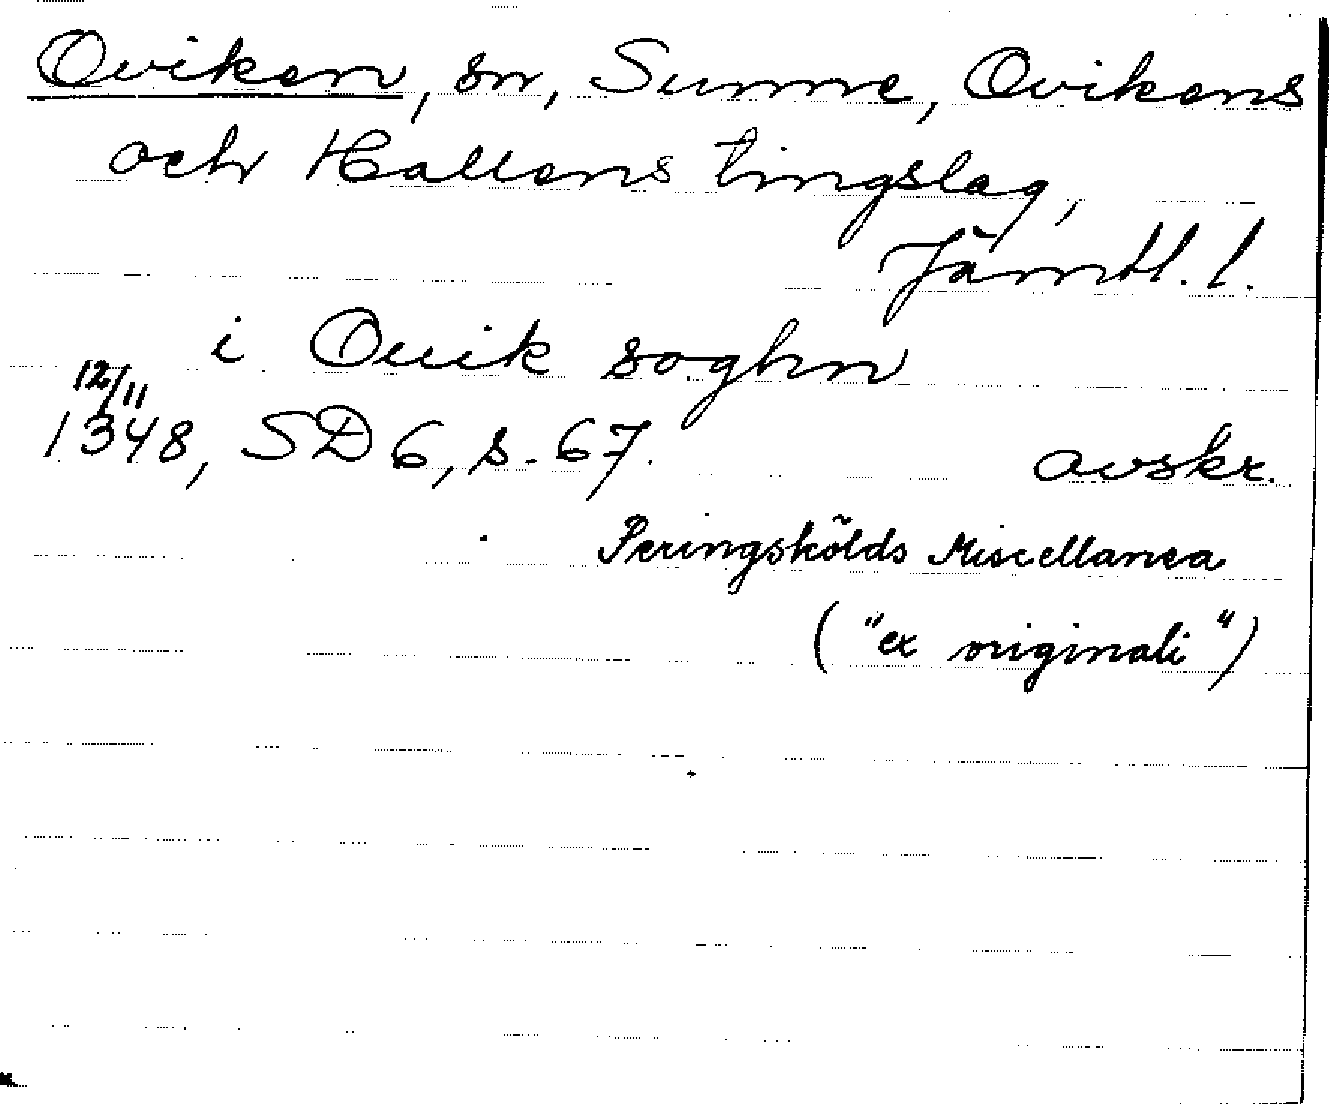 Oviken, sn, Sunne, Ovikens
och Hallens tingslag,
Jämtl. l.
i Ouik soghn
12/11
1348, SD 6, s. 67. avskr.
Peringskölds Miscellanea
("ex originali")